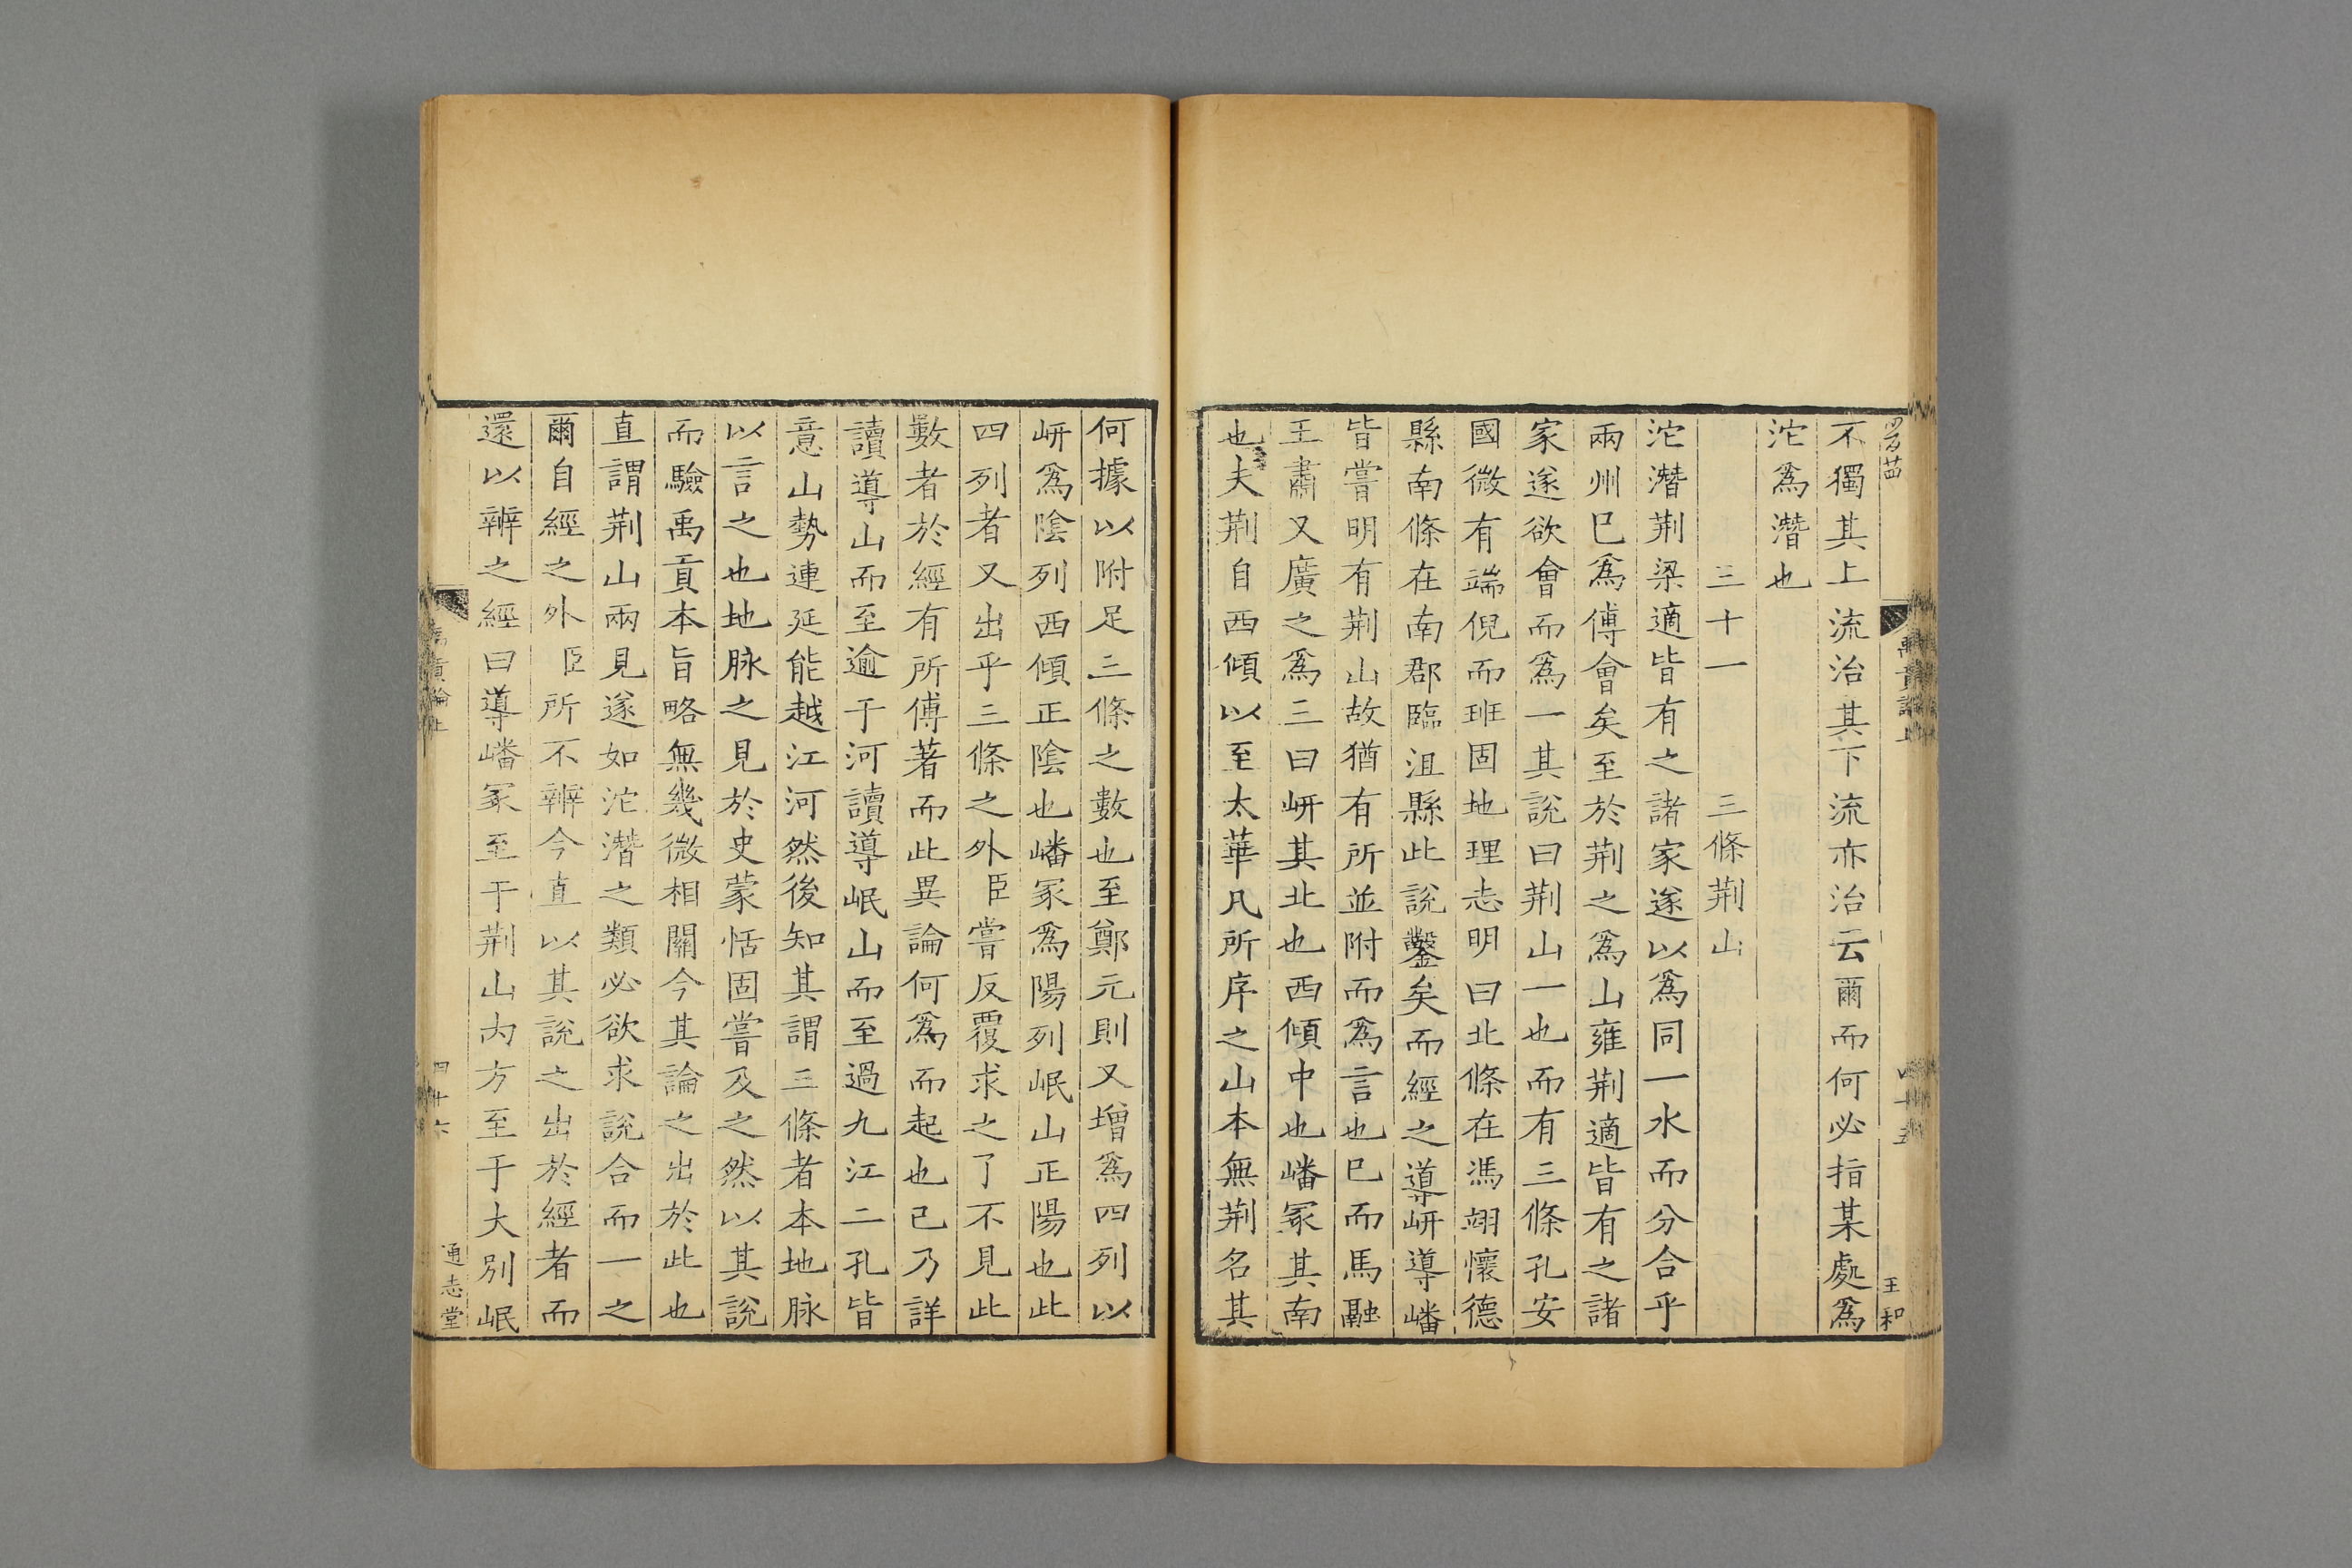 不獨其上流治其下流亦治云爾而何必指某處爲
沱爲潛也
三十一 三條荆山
沱潛荆梁適皆有之諸家遂以爲同一水而分合乎
兩州巳爲傅會矣至於荆之爲山雍荆適皆有之諸
家遂欲會而爲一其說曰荆山一也而有三條孔安
國微有端倪而班固地理志明曰北條在馮翊懷德
縣南條在南郡臨沮縣此說鑿矣而經之導岍導嶓
皆嘗明有荆山故猶有所並附而爲言也巳而馬融
王肅又廣之爲三曰岍其北也西傾中也嶓冢其南
也夫荆自西傾以至太華凡所序之山本無荆名其
王和
何據以附足三條之數也至鄭元則又增爲四列以
岍爲陰列西傾正陰也嶓冢爲陽列岷山正陽也此
四列者又出乎三條之外臣嘗反覆求之了不見此
數者於經有所傅著而此異論何爲而起也已乃詳
讀導山而至逾于河讀導岷山而至過九江二孔皆
意山勢連延能越江河然後知其謂三條者本地脉
以言之也地脉之見於史蒙恬固嘗及之然以其說
而驗禹貢本旨略無幾微相關今其論之出於此也
直謂荆山兩見遂如沱潛之類必欲求說合而一之
爾自經之外臣所不辨今直以其說之出於經者而
還以辨之經曰導嶓冢至于荆山內方至于大別岷
禹貢論上
四十六
通志堂